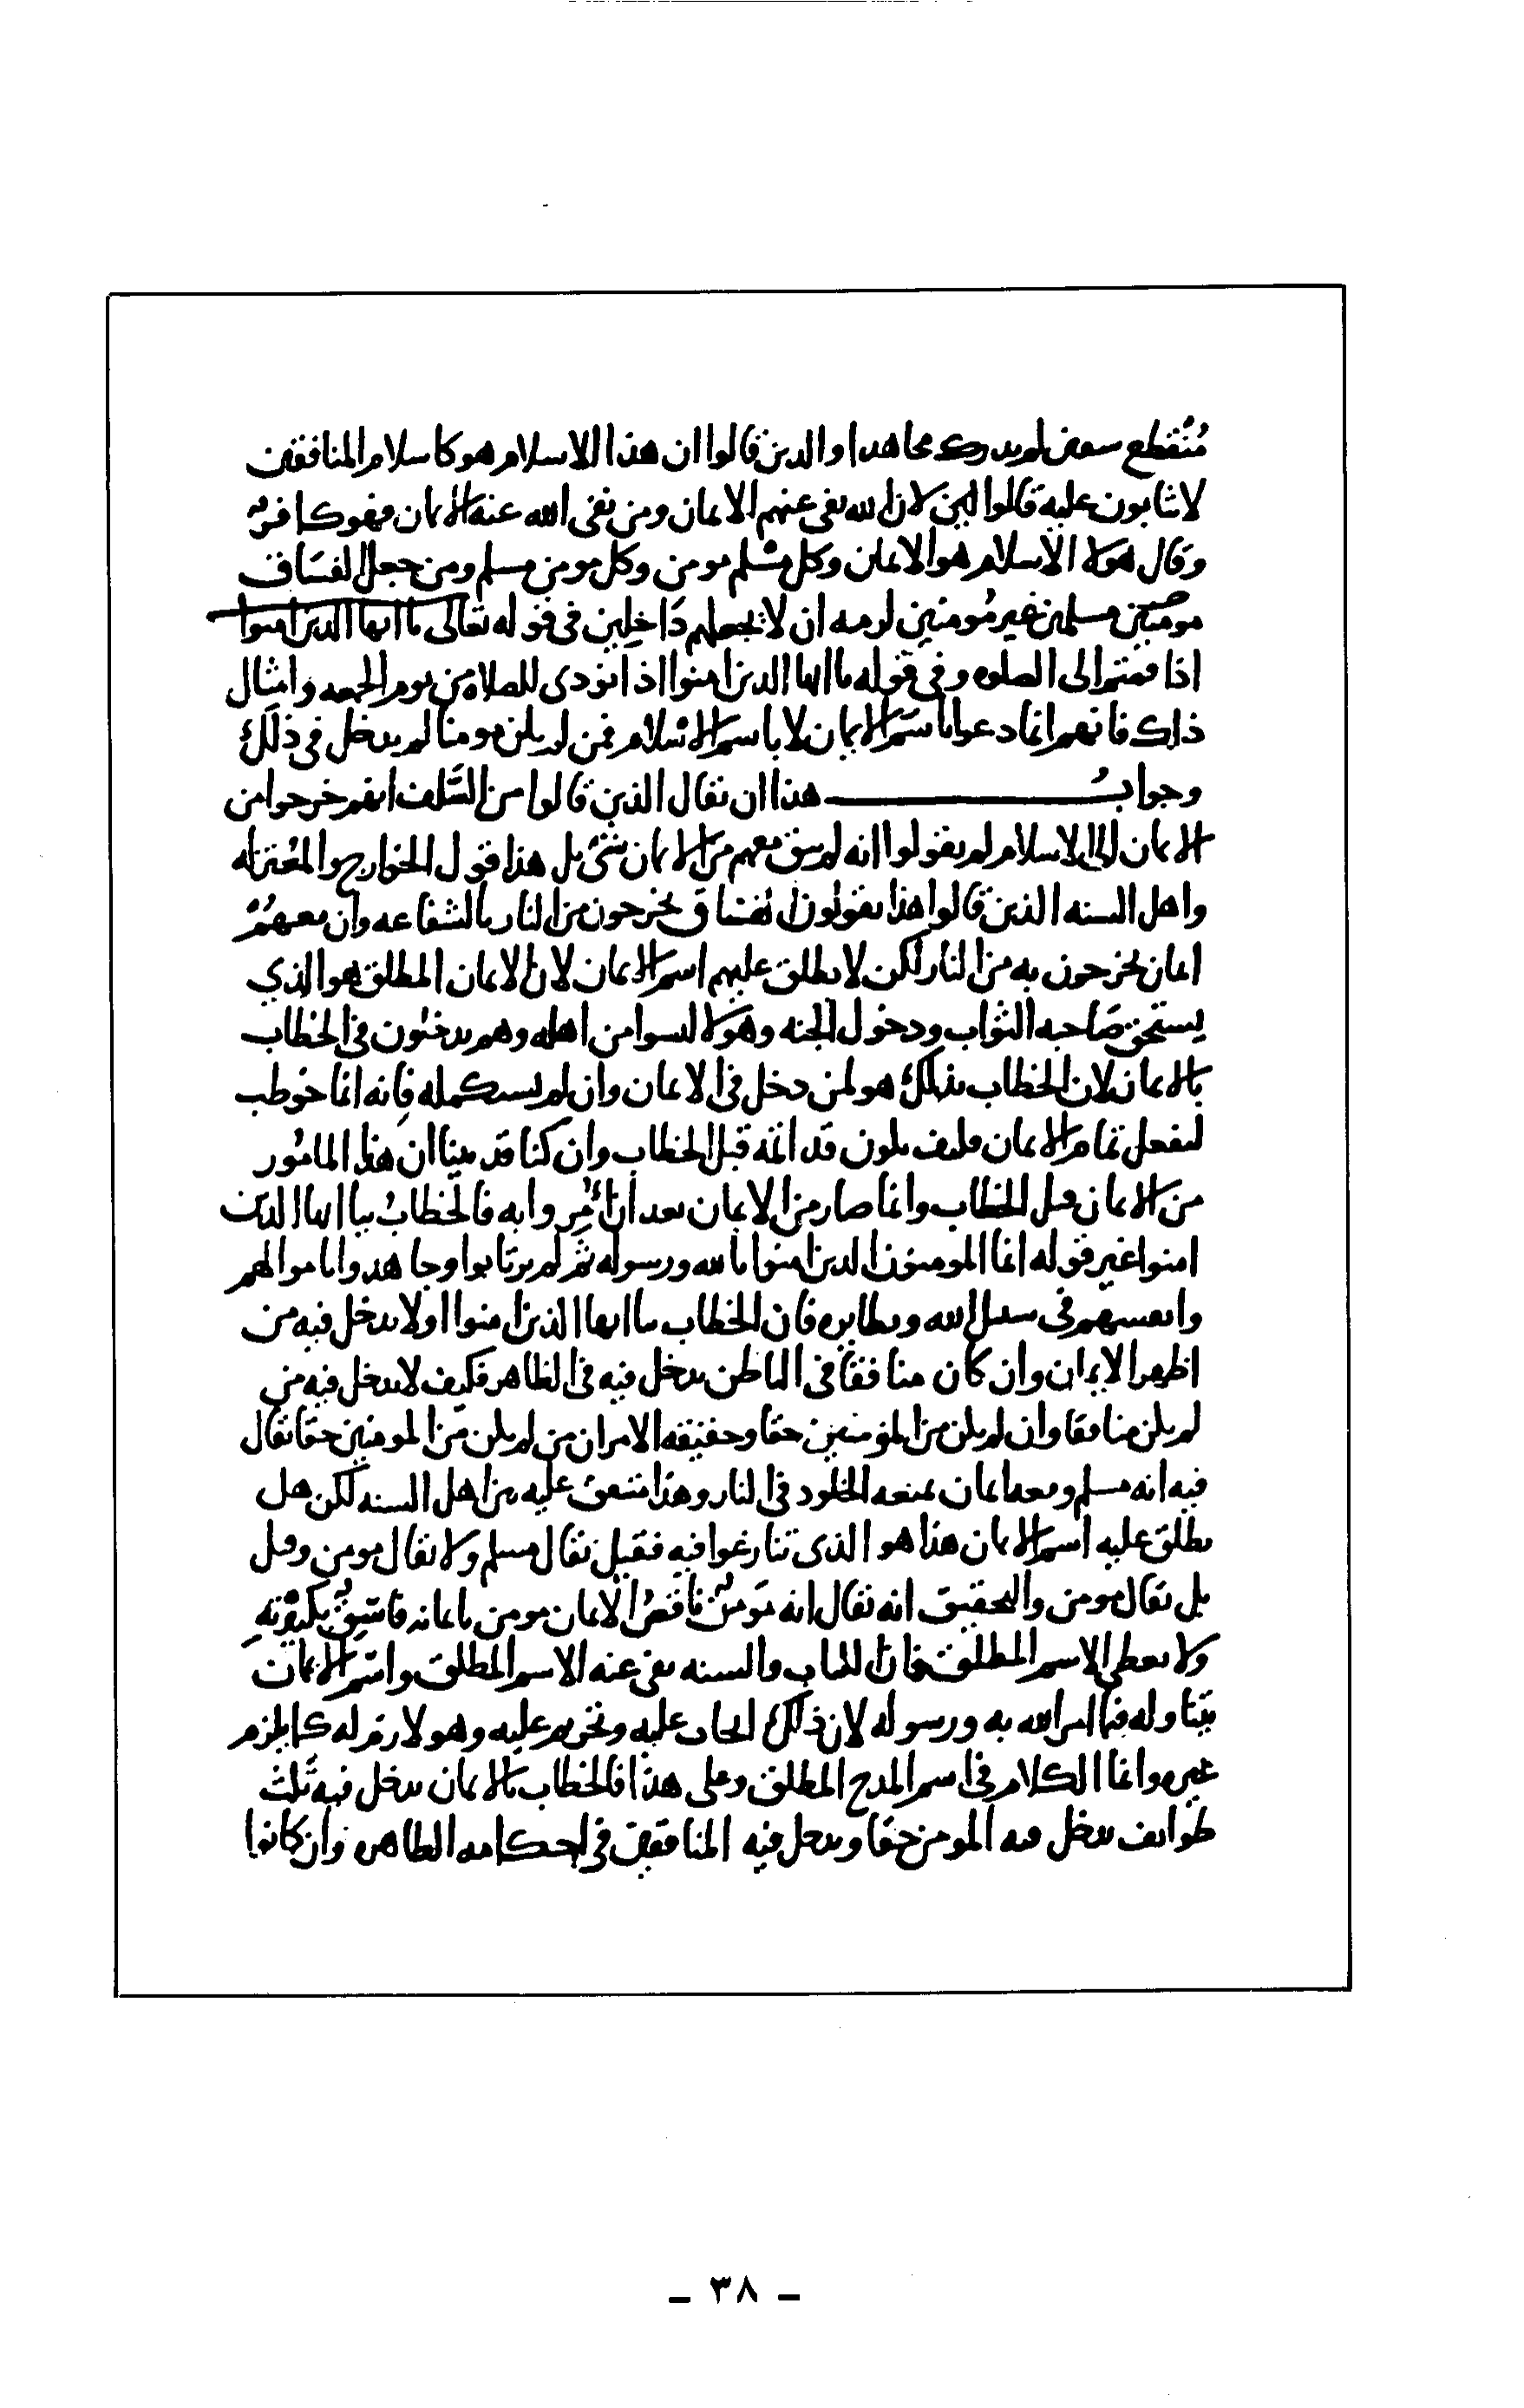 مُنْقطع سعين لم يدرك مجاهدا والذين قالوا ان هذا الاسلام هو كاسلام المنافقين
لا ثابون عليه قالوا لان الله نفى عنهم الايمان ومن نفى الله عنه الايمان فهو كافرٌ
وقال هولا الاسلام هو الايمان وكل مسلم مومن وكل مومن مسلم ومن جعل الفساق
مسلمين غير مُومنين لزمه ان لا يجعلهم دَاخِلين في قوله تعالى ياايها الذين امنوا
اذا قمتم الى الصلوه وفي قوله ياايها الذين امنوا اذا نودى للصلاه من يوم الجمعه وامثال
ذلك فانهم انما دعوا باسم الايمان لا باسم الاسلام فمن لم يكن مومنا لم يدخل في ذلك
وجوابُ هذا ان يقال الذين قالوا من السَّلف انهم خرجوا من
الايمان الى الاسلام لم يقولوا انه لم يبق معهم من الايمان شئ بل هذا قول الخوارج والمعتزله
واهل السنه الذين قالوا هذا يقولون الفساق يخرجون من النار بالشفاعه وان معهم
ايمان يخرجون به من النار لكن لا يطلق عليهم اسم الايمان لان الايمان المطلق هو الذي
يستحق صَاحبه الثواب ودخول الجنه وهولا ليسوا من اهله وهم يدخلون في الخطاب
بالايمان لان الخطاب بذلك هو لمن دخل في الايمان وان لم يستكمله فانه انما خوطب
ليفعل تمام الايمان فكيف يكون قد اتمه قبل الخطاب وان كنا قد بينا ان هذا المامُور
من الايمان قبل الخطاب وانما صار من الايمان بعد ان اُمِروا به فالخطابُ بياايها الذين
امنوا غير قوله انما المومنون الذين امنوا بالله ورسوله ثم لم يرتابوا وجاهدوا باموالهم
وانفسهم في سبيل الله ونظايره فان الخطاب ياايها الذين امنوا اولا يدخل فيه من
اظهر الايمان وان كان منافقا في الباطن يدخل فيه في الظاهر فكيف لا يدخل فيه من
لم يكن منافقا وان لم يكن من المؤمنين حقا وحقيقه الامر ان من لم يكن من المومنين حقا يقال
فيه انه مسلم ومعه ايمان يمنعه الخلود في النار وهذا متفق عليه بين اهل السنه لكن هل
يطلق عليه اسم الايمان هذا هو الذى تنازعوا فيه فقيل يقال مسلم ولا يقال مومن وقيل
بل يقال مومن والتحقيق انه يقال انه مومنٌ ناقصُ الايمان مومن بايمانه فاسقٌ بكبيرَتِهِ
ولا يعطى الاسم المطلق فان الكتاب والسنه نفى عنه الاسم المطلق واسم الايمان
يتناوله فيما امر الله به ورسوله لان ذلك ايجاب عليه وتحريم عليه وهو لازم له كما يلزم
غيره وانما الكلام في اسم المدح المطلق وعلى هذا فالخطاب بالايمان يدخل فيه ثلث
طوايف يدخل فيه المومن حقا ويدخل فيه المنافقين في احكامه الظاهره وان كانوا
- ٣٨ -